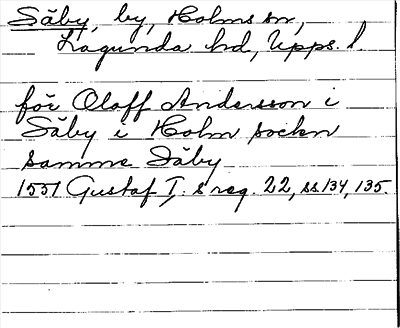 Säby, by, Holms sn,
Lagunda hd, Upps. l
för Oloff Andersson i
Säby i Holm sockn
samme Säby
1551 Gustaf I:s reg. 22, ss 134, 135.